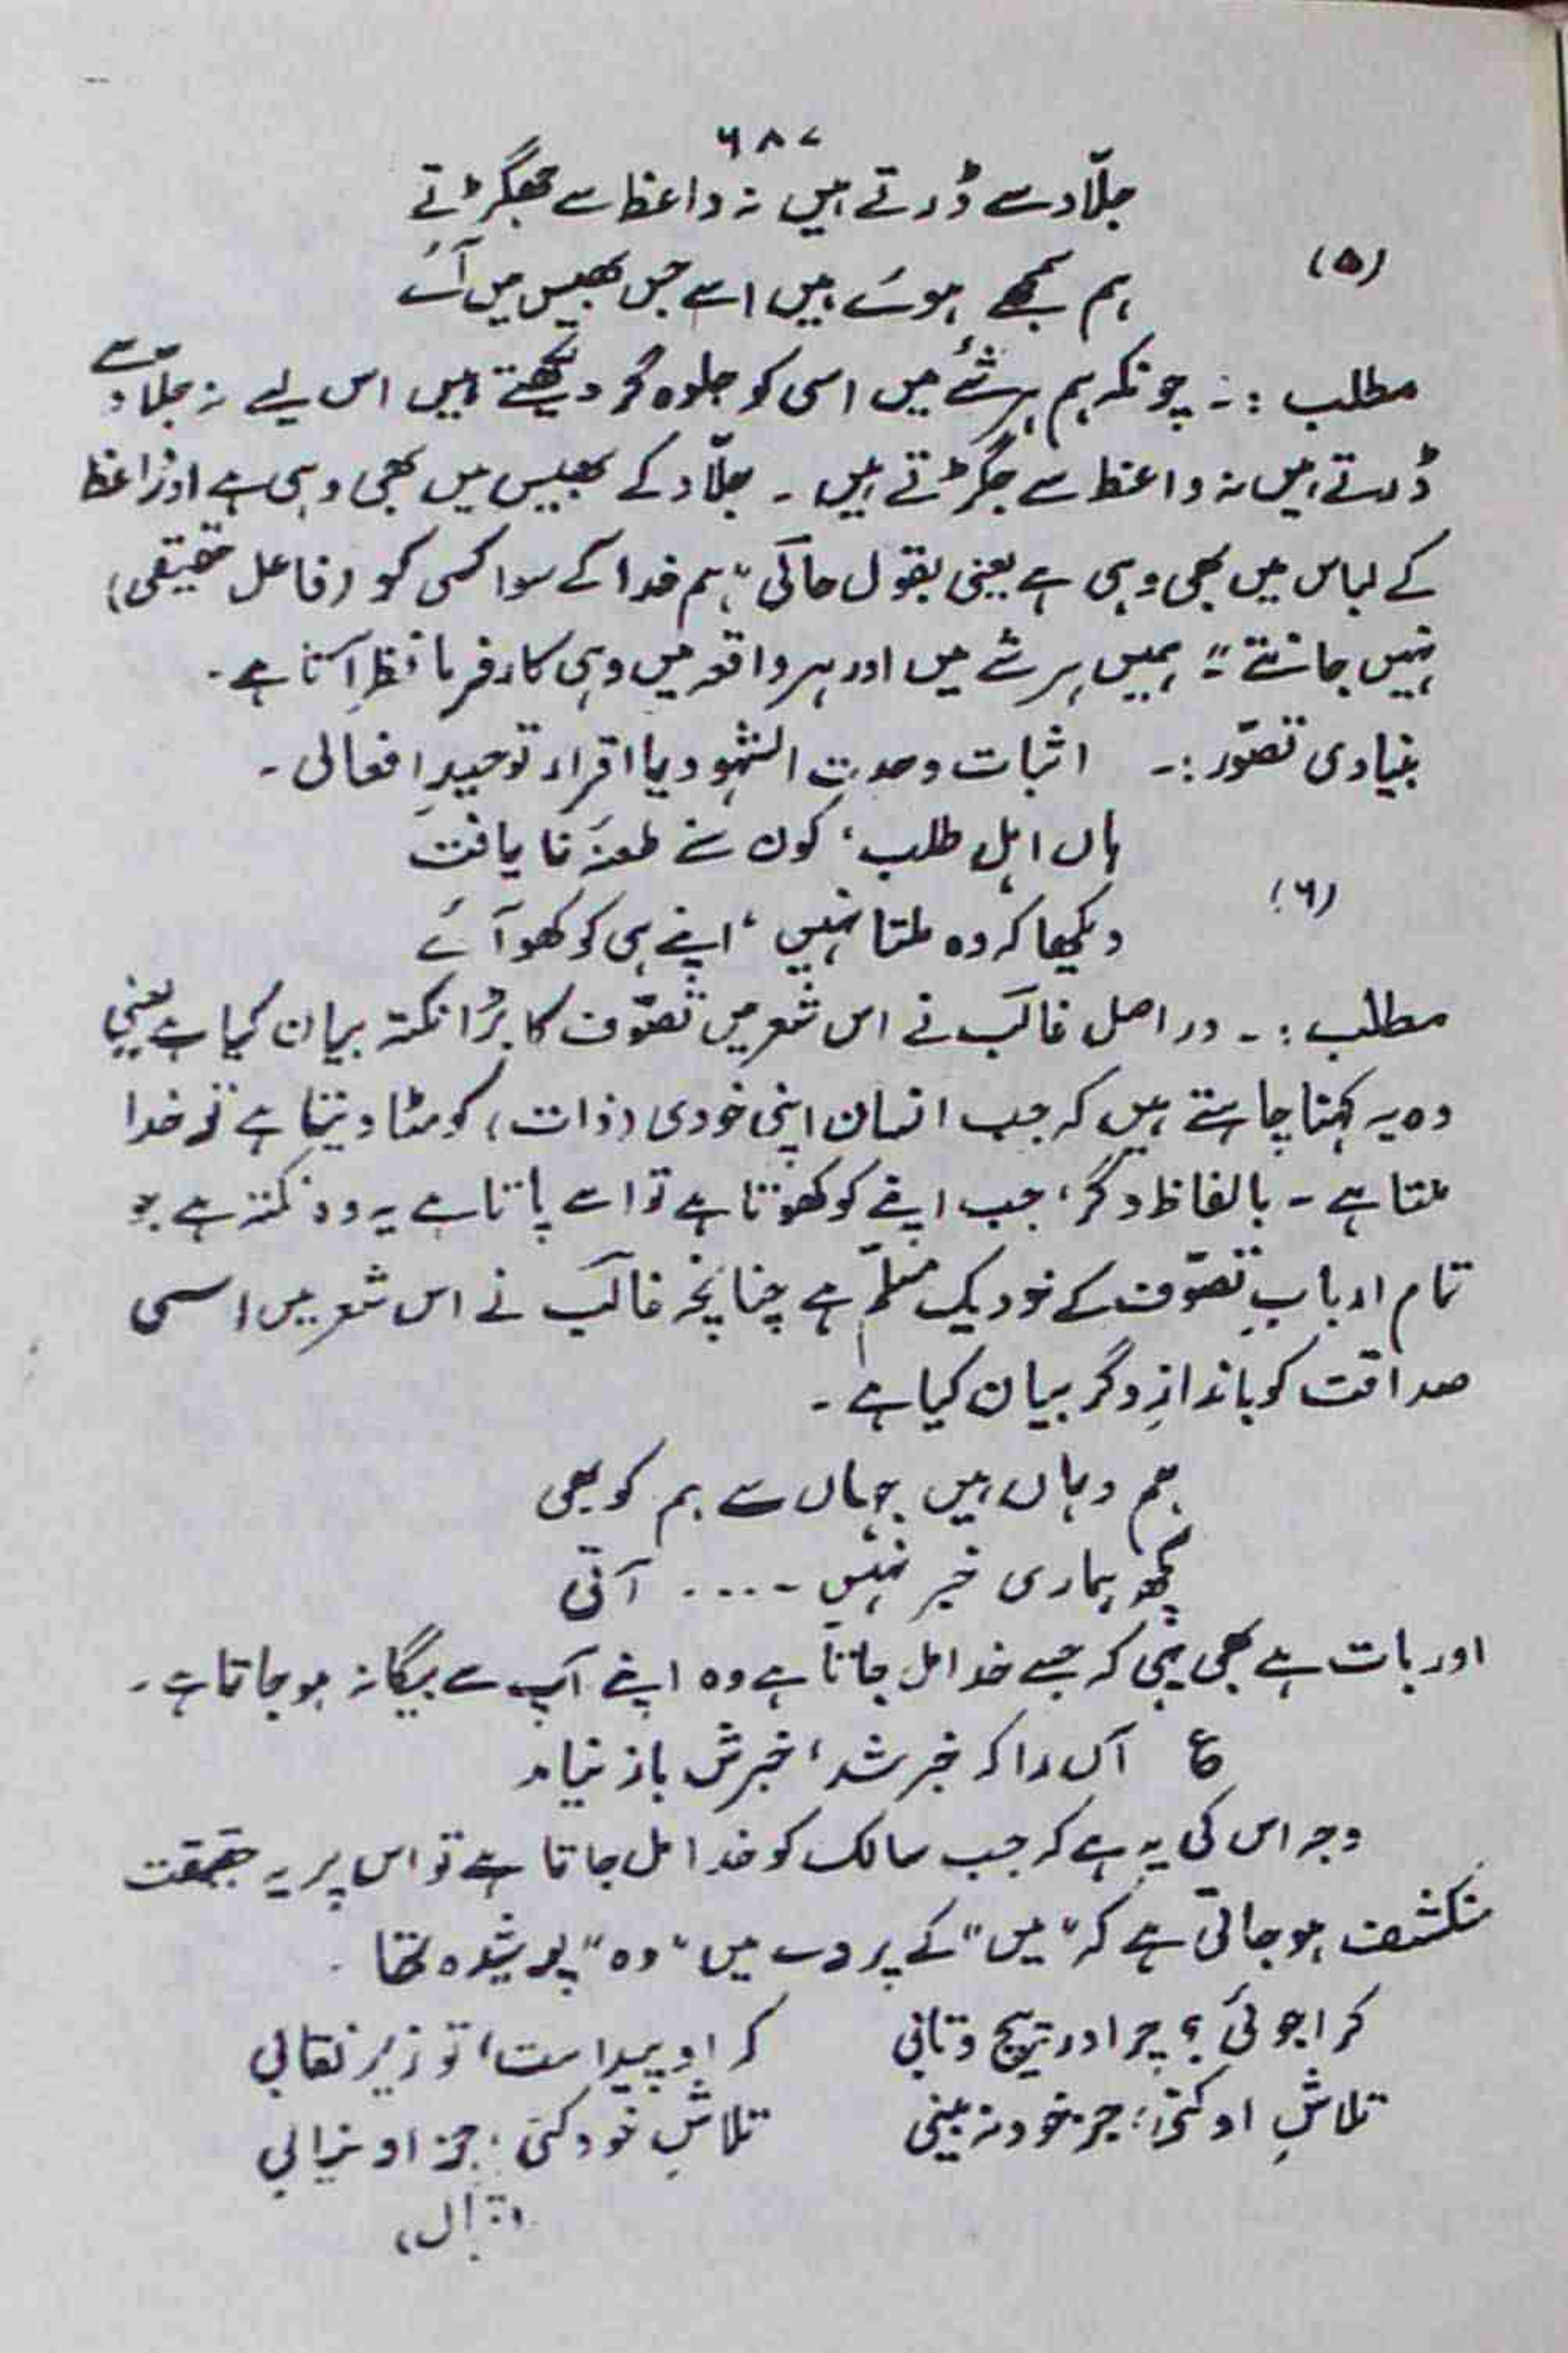 ۶۸۷
جلّاد سے ڈرتے ہیں نہ واعظ سے جھگڑتے
(۵)
ہم سمجھے ہوئے ہیں اسے جس بھیس میں آئے
مطلب :۔ چونکہ ہم ہر شئے میں اسی کو جلوہ گر دیکھتے ہیں اس لیے نہ جلاد سے
ڈرتے ہیں نہ واعظ سے جگڑتے ہیں ۔ جلّاد کے بھیس میں بھی وہی ہے اور واعظ
کے لباس میں بھی وہی ہے یعنی بقول حالی "ہم خدا کے سوا کسی کو (فاعل حقیقی)
نہیں جانتے" ہمیں ہر شے میں اور ہر واقعہ میں وہی کارفرما نظر آتا ہے ۔
بنیادی تصوّر :۔ اثبات وحدتِ الشہود یا اقرار توحیدِ افعالی ۔
ہاں اہلِ طلب ، کون سنے طعنۂ نا یافت
(۶)
دیکھا کہ وہ ملتا نہیں ، اپنے ہی کو کھو آئے
مطلب :۔ در اصل غالب نے اس شعر میں تصوّف کا بڑا نکتہ بیان کیا ہے یعنی
وہ یہ کہنا چاہتے ہیں کہ جب انسان اپنی خودی (ذات) کو مٹا دیتا ہے تو خدا
ملتا ہے ۔ بالفاظ دگر ، جب اپنے کو کھوتا ہے تو اسے پاتا ہے یہ وہ نکتہ ہے جو
تمام اربابِ تصوّف کے نزدیک مسلّم ہے چنانچہ غالب نے اس شعر میں اسی
صداقت کو باندازِ دگر بیان کیا ہے ۔
ہم وہاں ہیں جہاں سے ہم کو بھی
کچھ ہماری خبر نہیں ۔۔۔۔ آتی
اور بات ہے بھی یہی کہ جسے خدا مل جاتا ہے وہ اپنے آپ سے بیگانہ ہو جاتا ہے ۔
ع آں را کہ خبر شد ، خبرش باز نیامد
وجہ اس کی یہ ہے کہ جب سالک کو خدا مل جاتا ہے تو اس پر یہ حقیقت
منکشف ہو جاتی ہے کہ "میں" کے پردے میں "وہ" پوشیدہ تھا ۔
کرا جوئی ؟ چرا در پیچ و تابی کہ او پیداست ، تو زیر نقابی
تلاشِ او کنی ، جز خود نہ بینی تلاشِ خود کنی ، جز او نیابی
(اقبال)